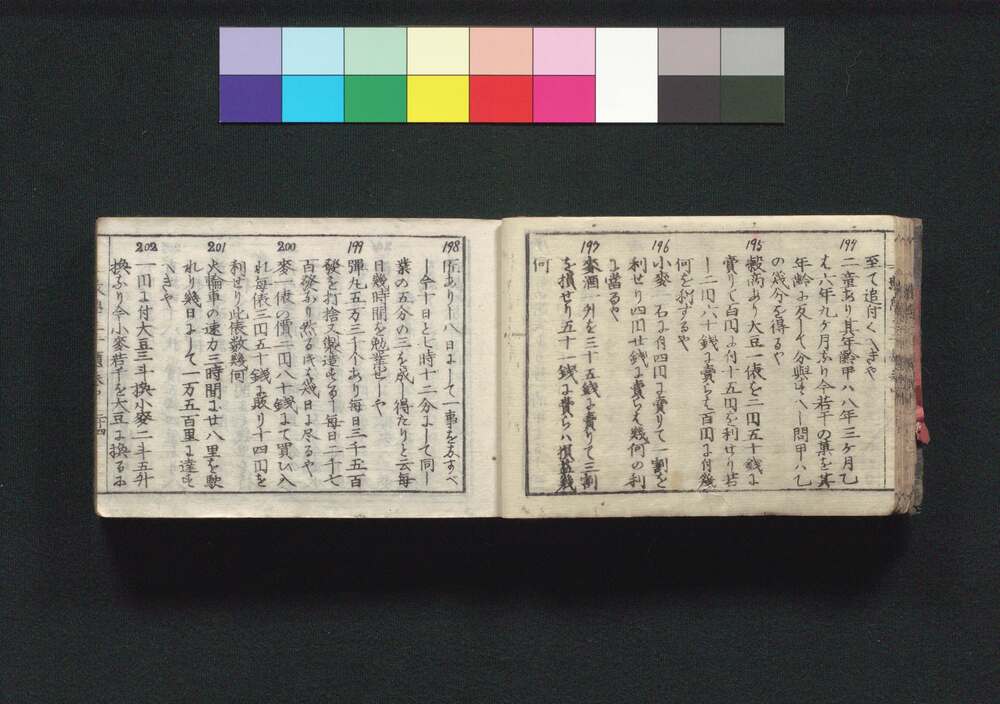 至て追付くへきや
194
二童あり其年齢甲ハ八年三ケ月乙
は六年九ケ月なり今若干の菓を其
年齢に反して分與すへし問甲ハ乙
の幾分を得るや
195
穀商あり大豆一俵を二円五十銭に
賣りて百円に付十五円を利せり若
し二円六十銭に賣らは百円に付幾
何を利するや
196
小麥一石に付四円に賣りて一割を
利せり四円廿銭に賣らは幾何の利
に當るや
197
麥酒一升を三十五銭に賣りて三割
を損せり五十一銭に賣らハ損益幾
何
198
匠あり十八日にして一事を為すへ
し今十日と七時十二分にして同し
業の五分の三を成し得たりと云毎
日幾時間を勉業せしや
199
彈丸五万三千个あり毎日三千五百
發を打捨又製造する毎日二千七
百發なり然るときは幾日に尽るや
200
麥一俵の價二円八十銭にて買ひ入
れ毎俵三円五十銭に賣り十四円を
利せり此俵数幾何
201
火輪車の速力三時間に廿八里を駛
れり幾日にして一万五百里に達す
へきや
202
一円に付大豆三斗換小麥二斗五升
換なり今小麥若干を大豆に換るに